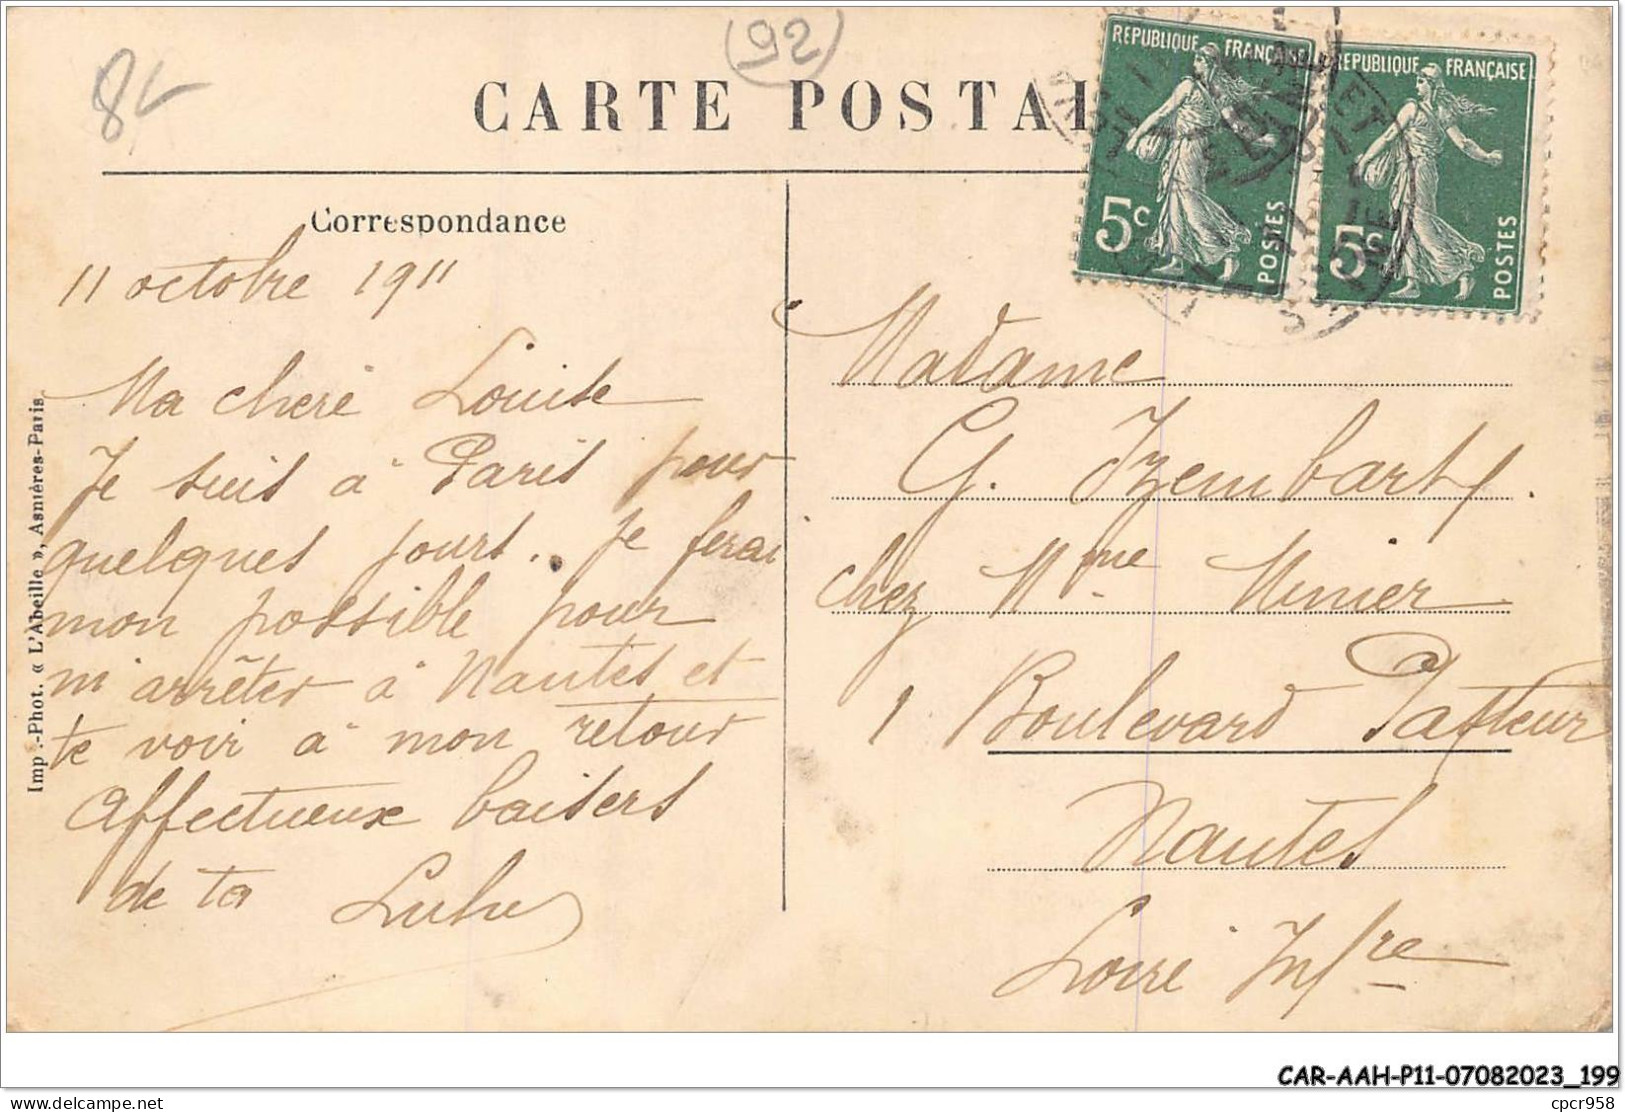 8
(92)
CARTE POSTAL
REPUBLIQUE FRANÇAISE
5c POSTES
REPUBLIQUE FRANÇAISE
5c POSTES
Correspondance
11 octobre 1911
Ma chere Louise
Je suis à Paris pour
quelques jours. je ferai
mon possible pour
m'arrêter à Nantes et
te voir à mon retour
Affectueux baisers
de ta
Madame
G. Izembart.
chez Mme Minier
1 Boulevard Pasteur
Nantes
Loire Infre
Imp.-Phot. « L'Abeille », Asnières-Paris.
CAR-AAH-P11-07082023_199
delcampe.net
cpcr958